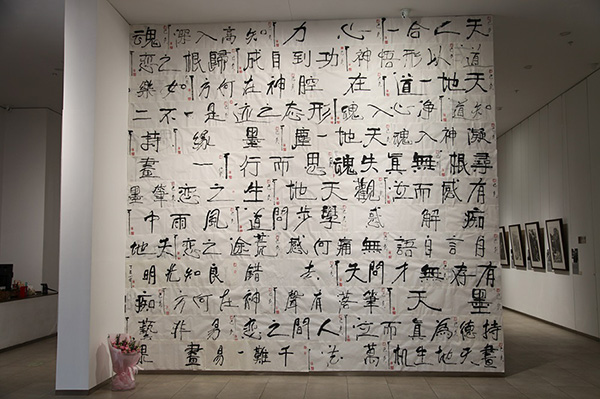 天之合一心力知高入解魂
道以形悟神功到自成歸根之恋
天地一道在腔神在何方如樂
知道净心入魂形态之迹是一不二
神入魂天地一塵墨缘持
尋根無真失魂思而行一畫
有感而立觀天地生之恋筆墨
痴解惑學步問道風雨中
自言自語無痛何感荒途之恋天地
有存無才問天去錯良知光明
墨天筆落有聲神在何方痴
持德為真而立人問之恋易非藝
畫天地生机萬千難一易畫